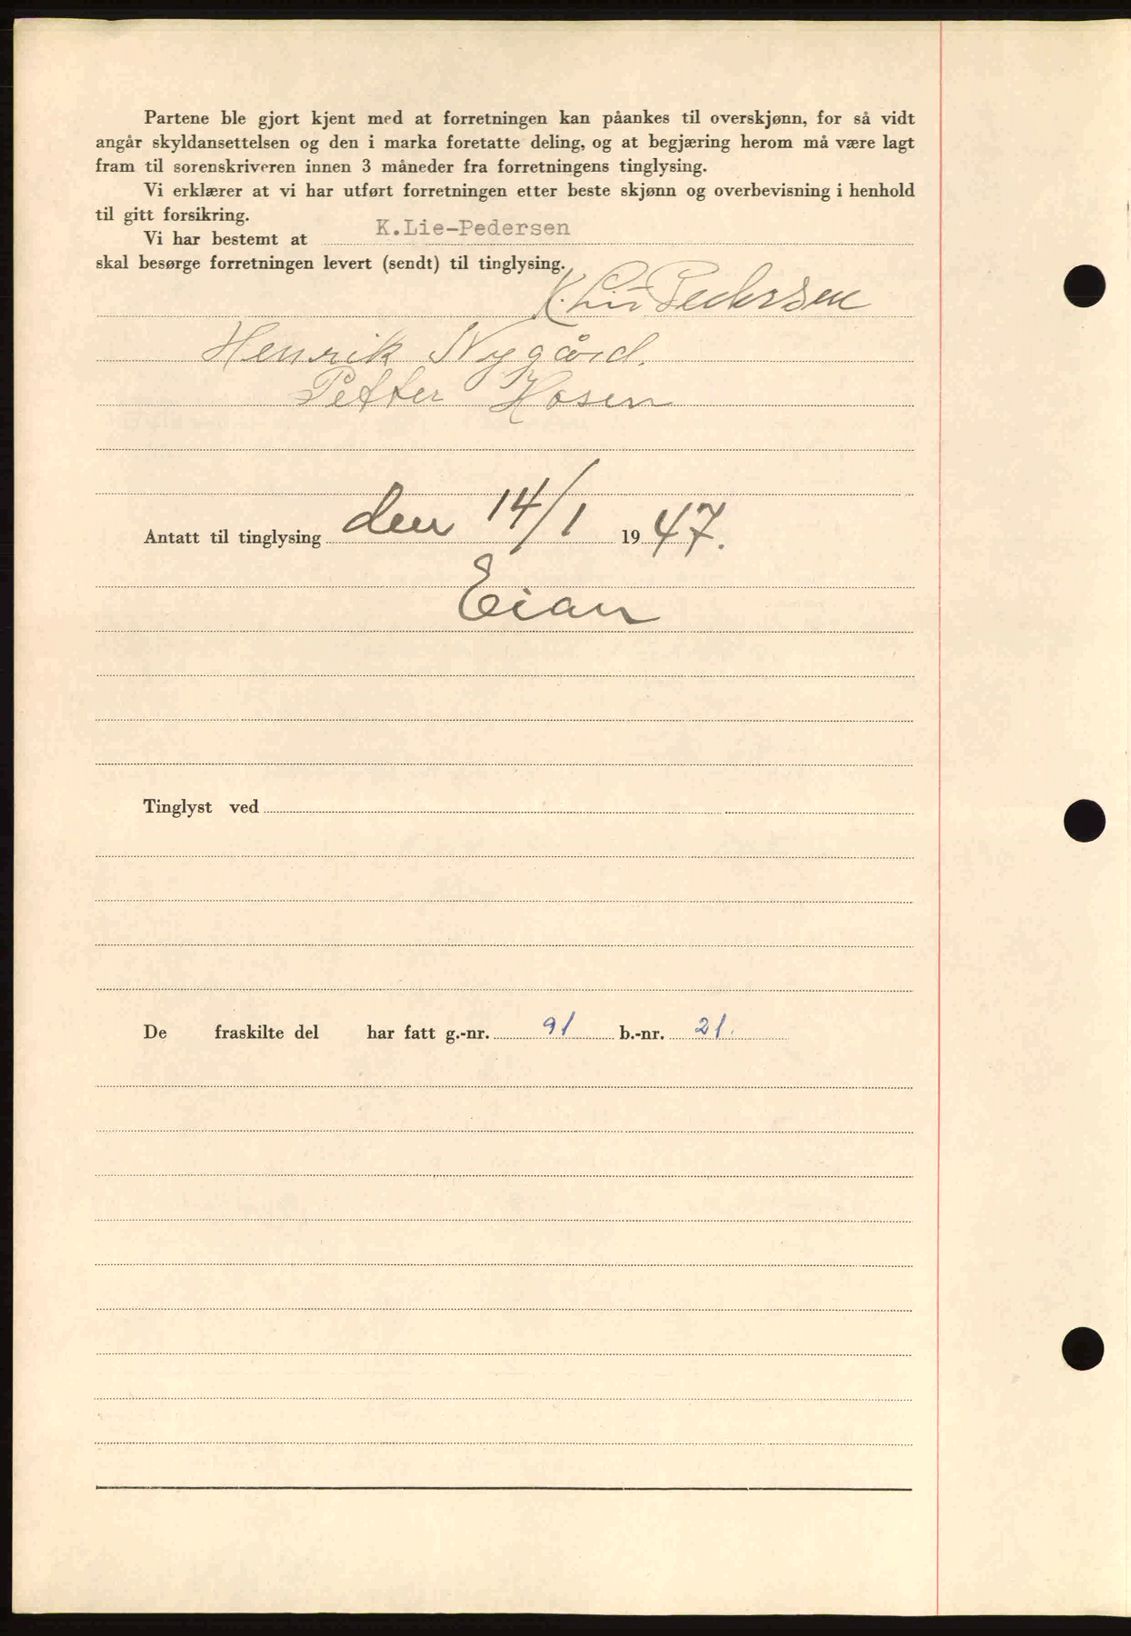 Partene ble gjort kjent med at forretningen kan påankes til overskjønn, for så vidt
angår skyldansettelsen og den i marka foretatte deling, og at begjæring herom må være lagt
fram til sorenskriveren innen 3 måneder fra forretningens tinglysing.
Vi erklærer at vi har utført forretningen etter beste skjønn og overbevisning i henhold
til gitt forsikring.
Vi har bestemt at K.Lie-Pedersen
skal besørge forretningen levert (sendt) til tinglysing.
K. Lie Pedersen
Henrik Nygård.
Petter Hosen
Antatt til tinglysing den 14/1 1947.
Eian
Tinglyst ved
De fraskilte del har fatt g.-nr. 91 b.-nr. 21.